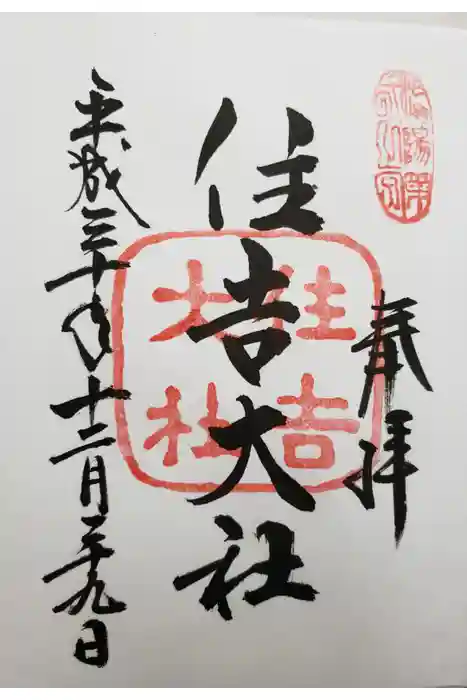 奉拝
住吉大社
住吉大社
平成三十年十二月二十九日